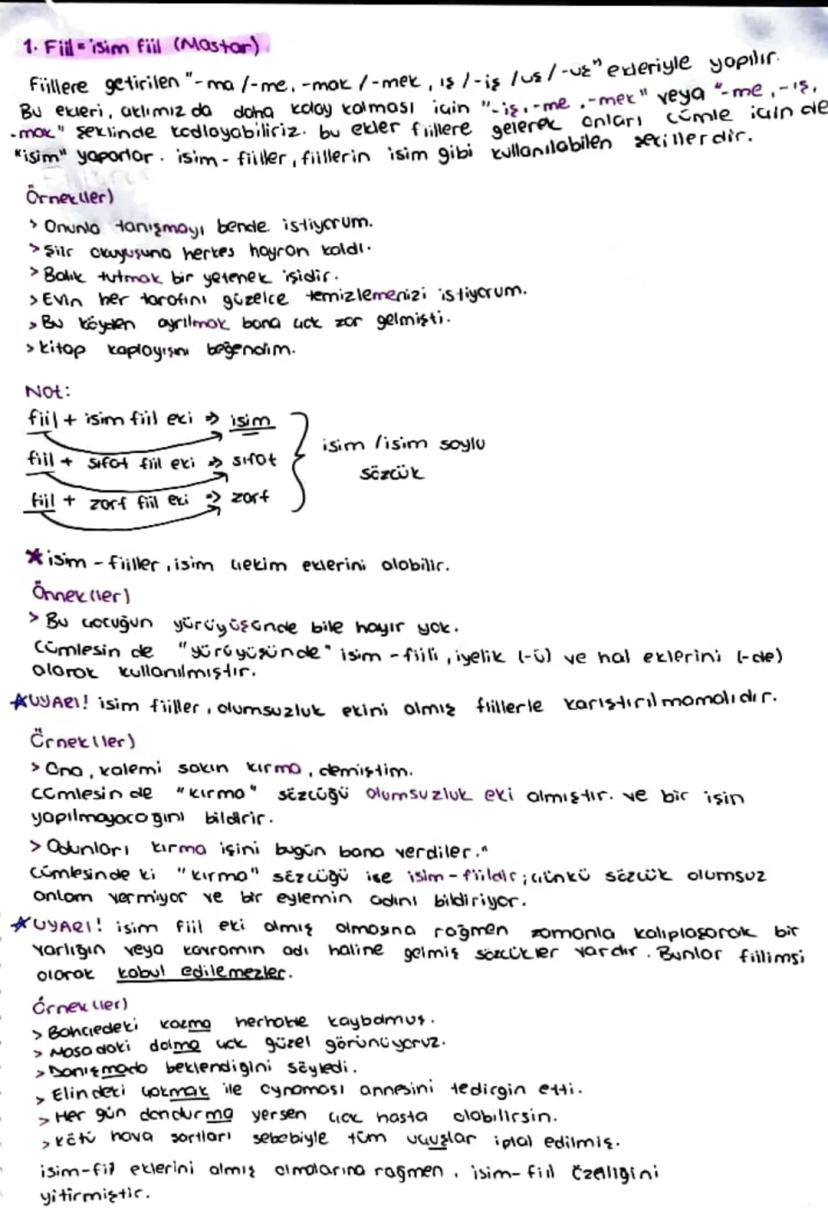 1. Fiil = isim fiil (Mastar)
Fiillere getirilen "-ma/-me, -mak/-mek, ış/-iş/uş/-üş" ekleriyle yapılır.
Bu ekleri, aklımız da daha kolay kalması için "-iş, -me, -mek" veya "-me, -ış,
-mak" şeklinde kodlayabiliriz. bu ekler fiillere gelerek onları cümle için de
"isim" yaparlar. isim-fiiller, fiillerin isim gibi kullanılabilen şekillerdir.
Örnek(ler)
> Onunla tanışmayı bende istiyorum.
> Şiir okuyuşuna herkes hayran kaldı.
> Balık tutmak bir yetenek işidir.
> Evin her tarafını güzelce temizlemenizi istiyorum.
> Bu köyden ayrılmak bana çok zor gelmişti.
> kitap kaplayışını beğendim.
Not:
fiil + isim fiil eki => isim
fiil + sıfat fiil eki => sıfat
fiil + zarf fiil eki => zarf
isim / isim soylu
sözcük
* isim-fiiller, isim çekim eklerini alabilir.
Örnek(ler)
> Bu çocuğun yürüyüşünde bile hayır yok.
cümlesin de "yürüyüşünde" isim-fiili, iyelik (-ü) ve hal eklerini (-de)
olarak kullanılmıştır.
*UYARI! isim fiiller, olumsuzluk ekini almış fiillerle karıştırılmamalıdır.
Örnek(ler)
> Ona, kalemi sakın kırma, demiştim.
cümlesin de "kırma" sözcüğü olumsuzluk eki almıştır. ve bir işin
yapılmayacağını bildirir.
> Odunları kırma işini bugün bana verdiler."
cümlesinde ki "kırma" sözcüğü ise isim-fiildir; çünkü sözcük olumsuz
anlam vermiyor ve bir eylemin adını bildiriyor.
*UYARI! isim fiil eki almış olmasına rağmen zamanla kalıplaşarak bir
varlığın veya kavramın adı haline gelmiş sözcükler vardır. Bunlar fiilimsi
olarak kabul edilemezler.
Örnek(ler)
> Bahçedeki kazma herhalde kaybolmuş.
> Masadaki dolma çok güzel görünüyoruz.
> Danışmada beklendiğini söyledi.
> Elindeki çakmak ile oynaması annesini tedirgin etti.
> Her gün dondurma yersen çok hasta olabilirsin.
> kötü hava şartları sebebiyle tüm uçuşlar iptal edilmiş.
isim-fiil eklerini almış olmalarına rağmen, isim-fiil özelliğini
yitirmiştir.